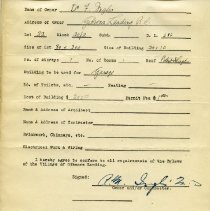 Name of Owner Dr. F. Inglis
Address of Owner Gibsons Landing B.C.
Lot 22 Block Subd. D. L. 686
Size of Lot Size of Building 20x10
No. of Storeys 1 No. of Rooms 1 Roof
Building to be used for Garage
No. of Toilets, etc. Heating
Cost of Building $ Permit Fee $
Name & Address of Architect
Name & Address of Contractor
Brickwork, Chimneys, etc.
Electrical Work & Wiring
I hereby agree to conform to all requirements of the Bylaws
of the Village of Gibsons Landing.
Signed:
Owner and/or Contractor.